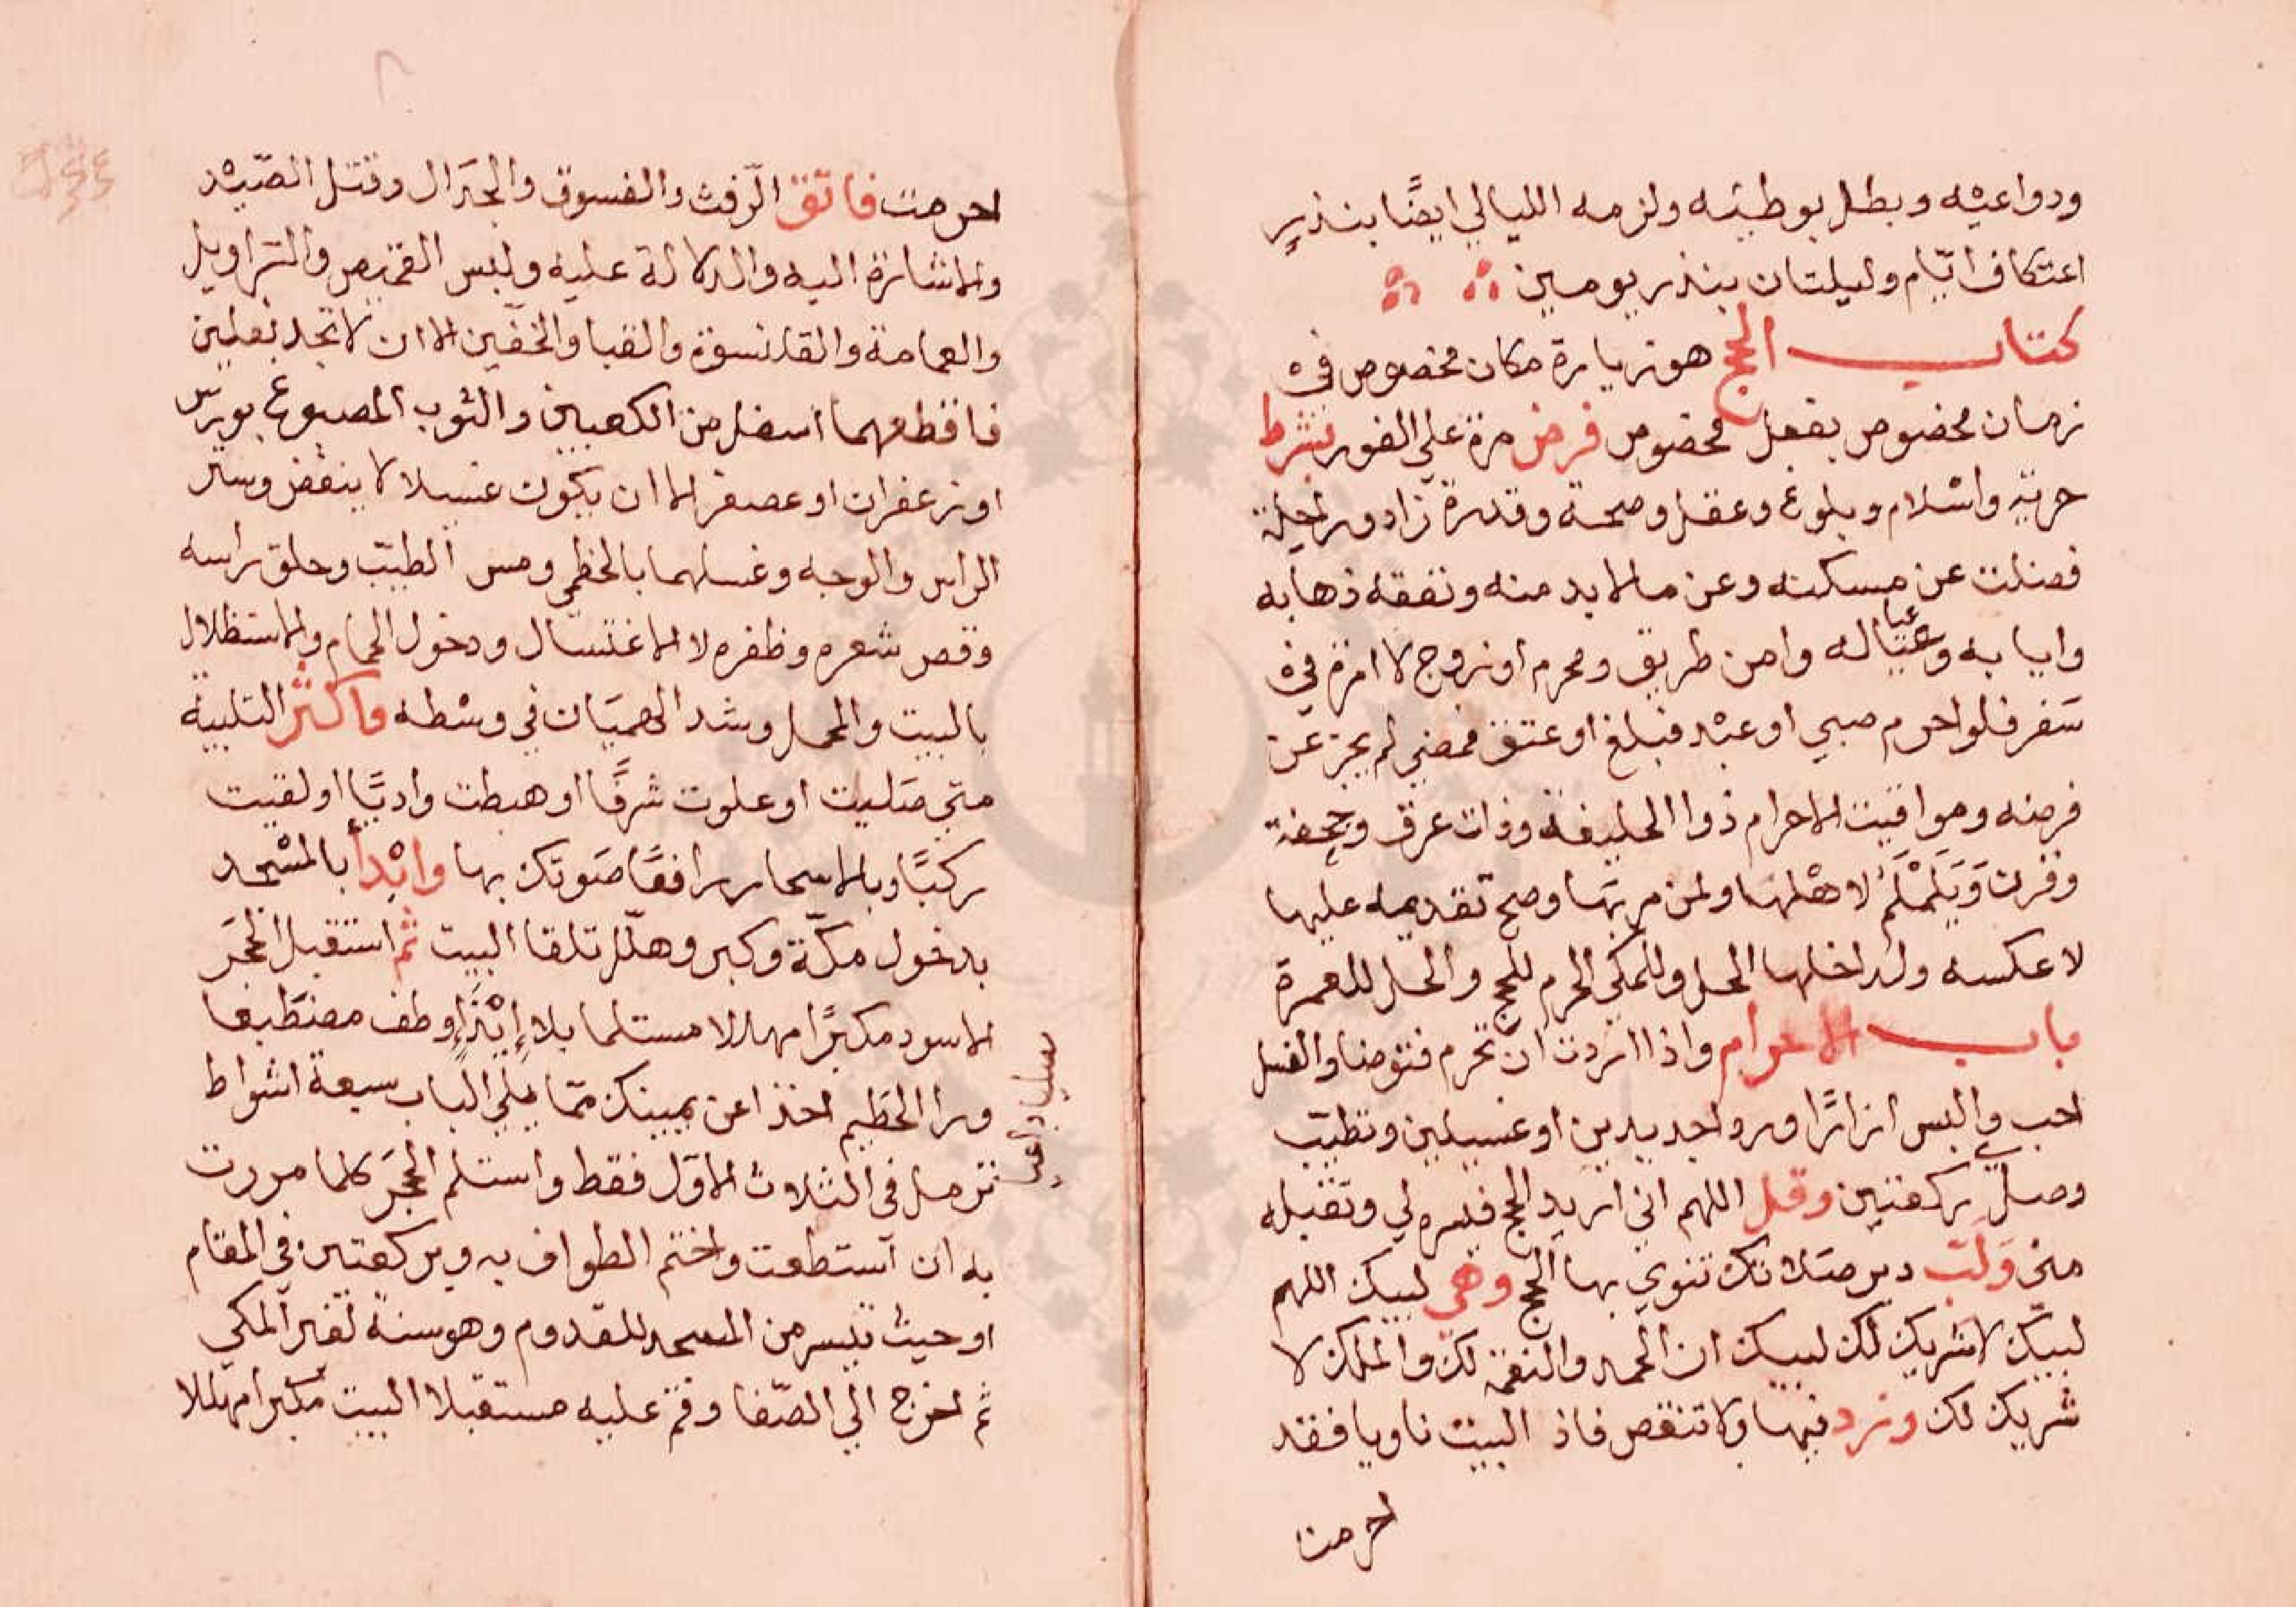 ودواعيه وبطل بوطئه ولزمه الليالي ايضًا بنذرٍ
اعتكاف ايّام وليلتان بنذر يومين
كتاب الحج هو زيارة مكان مخصوص في
زمان مخصوص بفعل مخصوص فرض مرة على الفور بشرط
حرية واسْلام وبلوغ وعقل وصحة وقدرة زاد وراحلة
فضلت عن مسكنه وعن مالابد منه ونفقه ذهابه
وايابه وعياله وامن طريق ومحرم او زوج لامراة في
سَفر فلو احرم صبي او عبْد فبلغ او عتق فمضي لم يجز عن
فرضه ومواقيت الاحرام ذوا الحليفة وذات عرق وجحفة
وقرن وَيَلَمْلَمُ لاهْلها ولمن مر بها وصح تقديمه عليها
لا عكسه ولداخلها الحل وللمكي الحرم للحج والحل للعمرة
باب الاحرام واذا اردت ان تحرم فتوضا والغسل
احب والبس ازارًا وردا جديدين او غسيلين وتطيّب
وصلّ ركعتين وقل اللهم اني اريد الحج فيسره لي وتقبله
مني وَلَبّ دبر صلاتك تنوي بها الحج وهي لبيك اللهم
لبيّك لا شريك لك لبيك ان الحمد والنعمة لك والملك لا
شريك لك وزد فيها ولا تنقص فاذ البيت ناويا فقد
احرمت
احرمت فاتّق الرّفث والفسوق والجدَال وقتل الصّيْد
والاشارة اليه والدلالة عليه ولبس القميص والسّراويل
والعمامة والقلنسوة والقبا والخفّين الا ان لا تجد نعلين
فاقطعهما اسفل من الكعبين والثوب المصبوغ بورس
او زعفران او عصفر الا ان يكون غسيلا لا ينفض وستر
الراس والوجه وغسلهما بالخطمي ومس الطيب وحلق راسه
وقص شعره وظفره لا الاغتسال ودخول الحمام والاستظلال
بالبيت والمحمل وشد الهميَان في وسْطه واكثر التلبية
متي صَليت او علوت شرفًا او هبطت واديًا او لقيت
ركبًا وبالاسحار رافعًا صَوتك بها وابْدأ بالمسْجد
بدخول مكّة وكبر وهلّل تلقا البيت ثم استقبل الحجَر
الاسود مكبرًا مهللا مستلما بلا إيْذاءٍ وطف مضطبعا
ورا الحَطيم اخذا عن يمينك ممّا يلي الباب سبعة اشواط
ترمل في الثلاث الاوَل فقط واستلم الحجَر كلما مررت
به ان استطعت واختم الطواف به وبركعتين في المقام
او حيث تيسر من المسجد للقدوم وهو سنة لغير المكي
ثم اخرج الي الصّفا وقم عليه مستقبلا البيت مكبرا مهللا